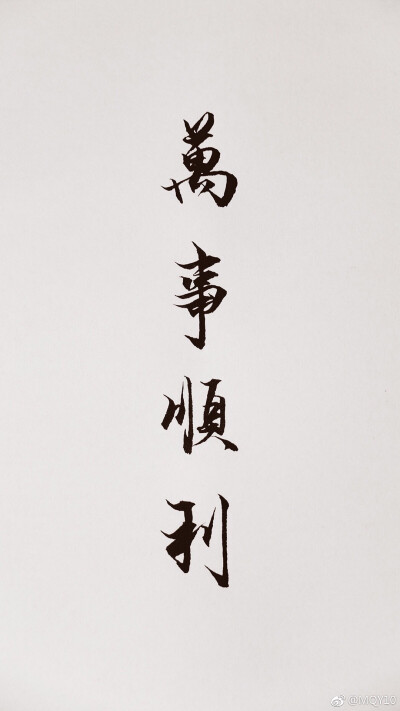 萬事順利
@MQY10